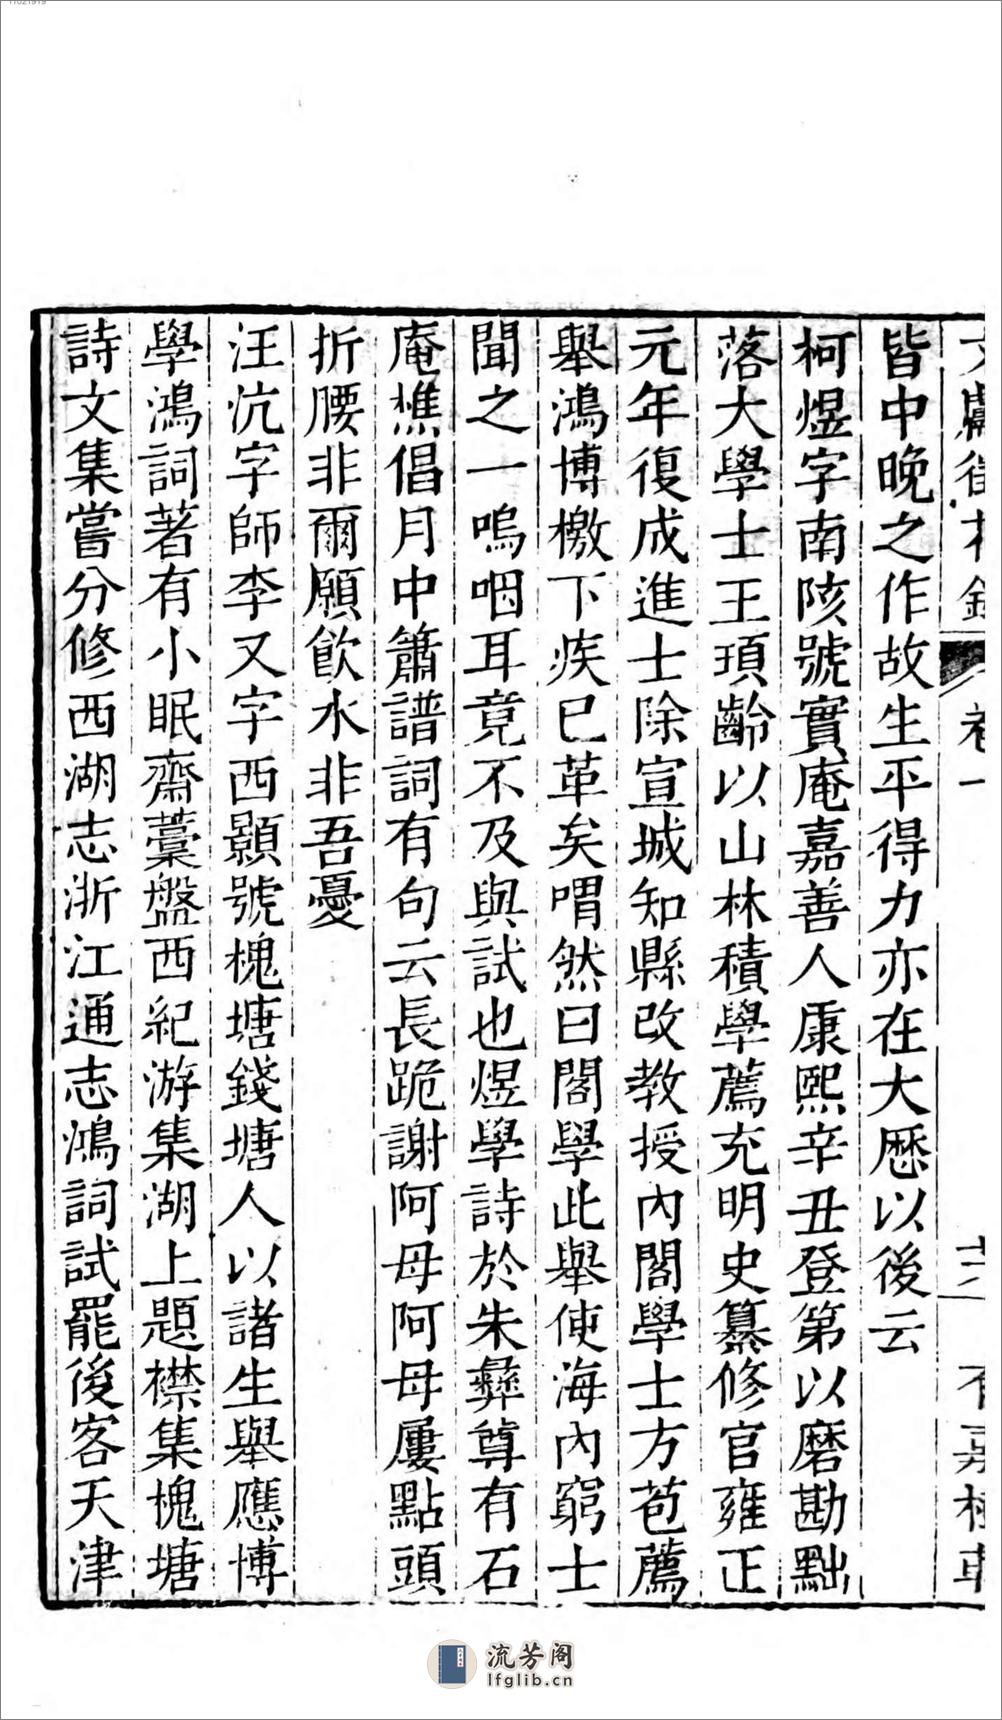 皆中晚之作故生平得力亦在大厯以後云
柯煜字南陔號實庵嘉善人康熙辛丑登第以磨勘黜
落大學士王頊齡以山林積學薦充明史纂修官雍正
元年復成進士除宣城知縣改教授內閣學士方苞薦
舉鴻博檄下疾已革矣喟然曰閣學此舉使海內窮士
聞之一嗚咽耳竟不及與試也煜學詩於朱彝尊有石
庵樵倡月中簫譜詞有句云長跪謝阿母阿母屢點頭
折腰非爾願飲水非吾憂
汪沆字師李又字西顥號槐塘錢塘人以諸生舉應博
學鴻詞著有小眠齋藁盤西紀游集湖上題襟集槐塘
詩文集嘗分修西湖志浙江通志鴻詞試罷後客天津
流芳阁
lfglib.cn